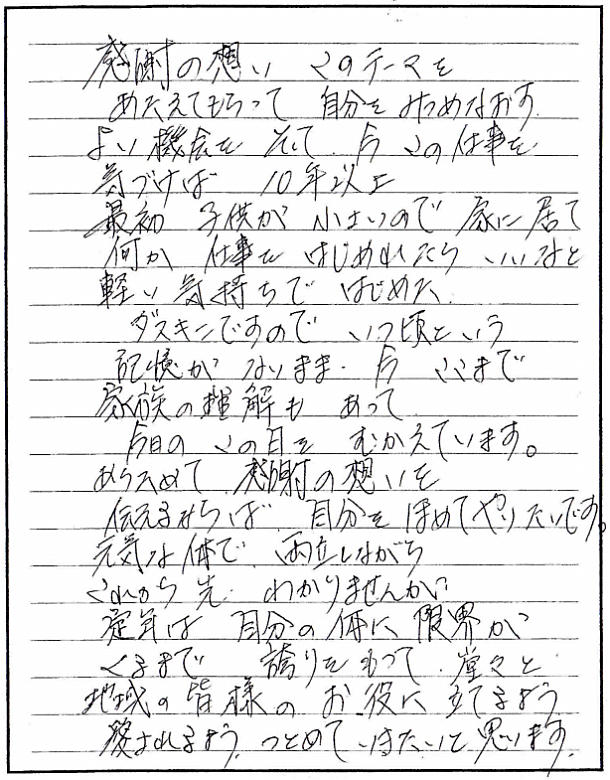 感謝の想い このテーマを
あたえてもらって 自分を みつめなおす
よい機会を そして 今 この仕事を
気づけば 10年以上
最初 子供が 小さいので 家に居て
何か 仕事を はじめれたら いいなと
軽い気持ちで はじめた
ダスキンですので いつ頃という
記憶が ないまま 今 ここまで
家族の理解も あって
今日の この日を むかえています。
あらためて 感謝の想いを
伝えるならば 自分を ほめてやりたいです。
元気な体で 両立しながら
これから先 わかりませんが
定年は 自分の体に 限界が
くるまで 誇りをもって 堂々と
地域の皆様の お役に立てるよう
愛されるよう つとめて いきたいと思います。